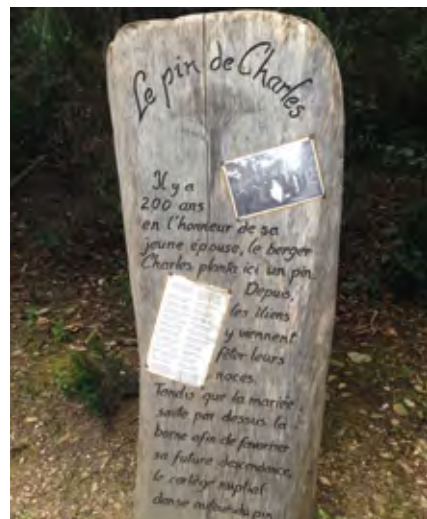 Le pin de Charles
Il y a
200 ans
en l'honneur de sa
jeune épouse, le berger
Charles planta ici un pin.
Depuis,
les îliens
y viennent
fêter leurs
noces.
Tandis que la mariée
saute par dessus la
borne afin de favoriser
sa future descendance,
le cortège nuptial
danse autour du pin